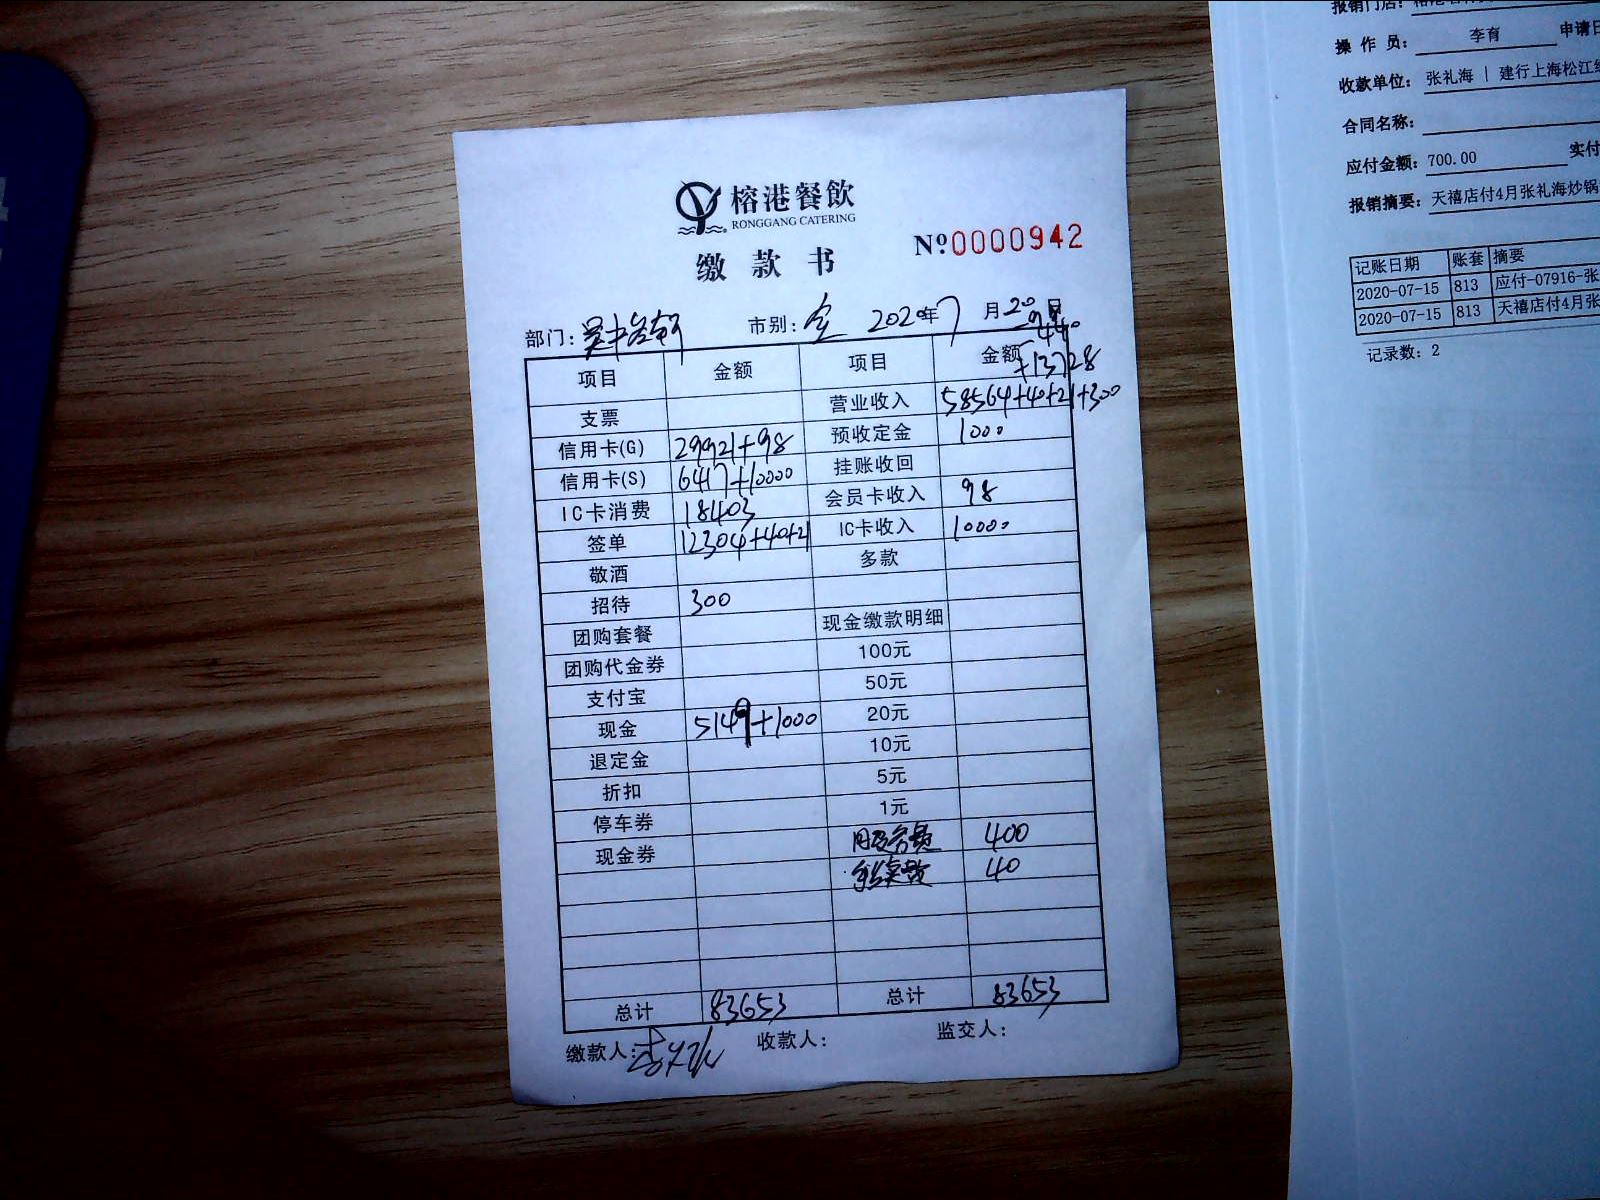 榕港餐飲
RONGGANG CATERING
缴款书
Nº0000942
部门: 市别: 全 2020年7月20日
-440
+13728
项目 金额 项目 金额
支票 营业收入 58564+40+21+300
信用卡(G) 29921+98 预收定金 1000
信用卡(S) 6417+10000 挂账收回
IC卡消费 18403 会员卡收入 98
签单 12304+40+21 IC卡收入 10000
敬酒 多款
招待 300
团购套餐 现金缴款明细
团购代金券 100元
支付宝 50元
现金 5149+1000 20元
退定金 10元
折扣 5元
停车券 1元
现金券 400
40
总计 83653 总计 83653
缴款人: 收款人: 监交人:
报销门店:
操作员: 李育 申请日
收款单位: 张礼海 | 建行上海松江
合同名称:
应付金额: 700.00 实付
报销摘要: 天禧店付4月张礼海炒锅
记账日期 账套 摘要
2020-07-15 813 应付-07916-张
2020-07-15 813 天禧店付4月张
记录数: 2